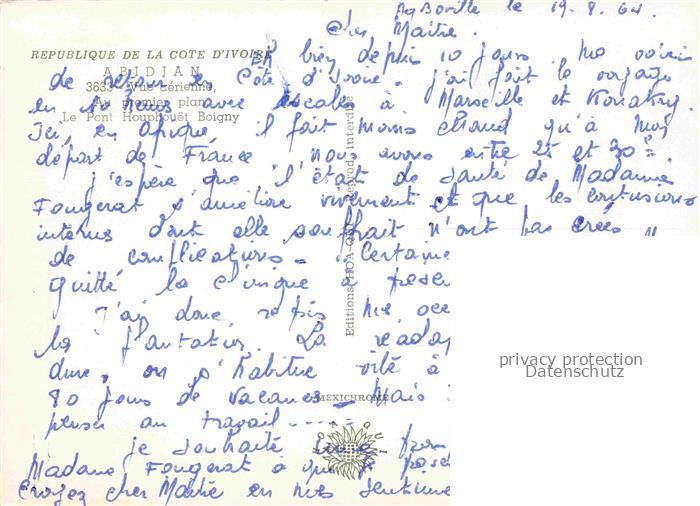 Agboville le 19.8.64.
Cher Maître.
REPUBLIQUE DE LA COTE D'IVOIRE
Eh bien depuis 10 jours me voici
ABIDJAN
de retour en Côte d'Ivoire. j'ai fait le voyage
3633 Vue aérienne,
en 10 heures avec escale à Marseille et Konakry.
Au premier plan
Le Pont Houphouët Boigny
Ici, en Afrique il fait moins chaud qu'à mon
départ de France nous avons entre 25 et 30°.
j'espère que l'état de santé de Madame
Fougerat s'améliore vivement et que les contusions
internes dont elle souffrait n'ont pas créés
de complications. Certaine
quitté la clinique à présen
J'ai donc repris mes occ
la plantation. La réadap
dure, on s'habitue vite à
80 jours de vacances Mais
penser au travail
je souhaite
Madame Fougerat à qui
Croyez cher Maître en mes sentime
Editions HOA-QUI Reprod. interdite
MEXICHROME
privacy protection
Datenschutz